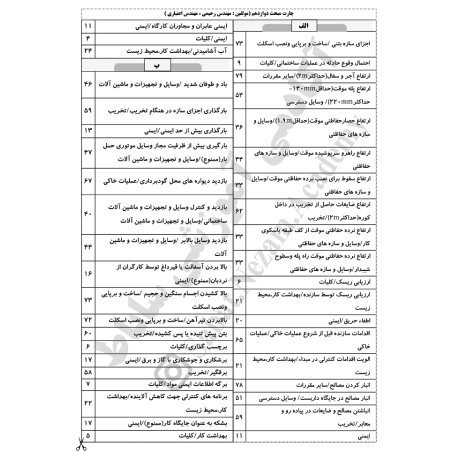 چارت مبحث دوازدهم (مولفین : مهندس رحیمی ، مهندس اعتباری )
الف
اجزای سازه بتنی /ساخت و برپایی ونصب اسکلت ۷۳
احتمال وقوع حادثه در عملیات ساختمانی/کلیات ۹
ارتفاع آجر و سفال(حداکثر۲m)/سایر مقررات ۷۹
ارتفاع پله موقت(حداقل۱۴۰mm–
حداکثر۲۲۰mm)/ وسایل دسترسی ۵۴
ارتفاع حصارحفاظتی موقت(حداقل۱.۹m)/وسایل و
سازه های حفاظتی ۳۶
ارتفاع راهرو سرپوشیده موقت/وسایل و سازه های
حفاظتی ۳۴
ارتفاع سقوط برای نصب نرده حفاظتی موقت/وسایل
و سازه های حفاظتی ۳۳
ارتفاع ضایعات حاصل از تخریب در داخل
کوره(حداکثر۲m)/تخریب ۶۲
ارتفاع نرده حفاظتی موقت از کف طبقه یاسکوی
کار/وسایل و سازه های حفاظتی ۳۳
ارتفاع نرده حفاظتی موقت راه پله وسطوح
شیبدار/وسایل و سازه های حفاظتی ۳۳
ارزیابی ریسک/کلیات ۶
ارزیابی ریسک توسط سازنده/بهداشت کار،محیط
زیست ۲۱
اطفاء حریق/ایمنی ۲۰
اقدامات سازنده قبل از شروع عملیات خاکی/عملیات
خاکی ۶۵
الویت اقدامات کنترلی در مبداء/بهداشت کار،محیط
زیست ۲۱
انبار کردن مصالح/سایر مقررات ۷۸
انبار مصالح در جایگاه داربست/ وسایل دسترسی ۵۱
انباشتن مصالح و ضایعات در پیاده رو و
معابر/تخریب ۵۹
ایمنی ۱۱
ایمنی عابران و مجاوران کارگاه/ایمنی ۱۱
ایمنی/کلیات ۴
آب آشامیدنی/بهداشت کار،محیط زیست ۲۴
ب
باد و طوفان شدید /وسایل و تجهیزات و ماشین آلات ۴۶
بارگذاری اجزای سازه در هنگام تخریب/تخریب ۵۹
بارگذاری بیش از حد ایمنی/ایمنی ۱۳
بارگیری بیش از ظرفیت مجاز وسایل موتوری حمل
بار(ممنوع)/وسایل و تجهیزات و ماشین آلات ۴۷
بازدید دیواره های محل گودبرداری/عملیات خاکی ۶۷
بازدید و کنترل وسایل و تجهیزات و ماشین آلات
ساختمانی/وسایل و تجهیزات و ماشین آلات ۴۰
بازدید وسایل بالابر /وسایل و تجهیزات و ماشین
آلات ۴۴
بالا بردن آسفالت یا قیرداغ توسط کارگران از
نردبان(ممنوع)/ایمنی ۱۶
بالا کشیدن اجسام سنگین و حجیم /ساخت و برپایی
ونصب اسکلت ۷۳
بالابردن تیرآهن/ساخت و برپایی ونصب اسکلت ۷۲
بتن پیش تنیده یا پس کشیده/تخریب ۶۰
برچسب گذاری/کلیات ۶
برشکاری و جوشکاری با گاز و برق/ایمنی ۱۷
برقگیر/تخریب ۵۸
برگه اطلاعات ایمنی مواد/کلیات ۷
برنامه های کنترلی جهت کاهش آلاینده/بهداشت
کار،محیط زیست ۲۲
بشکه به عنوان جایگاه کار(ممنوع)/ایمنی ۱۷
بهداشت کار/کلیات ۵